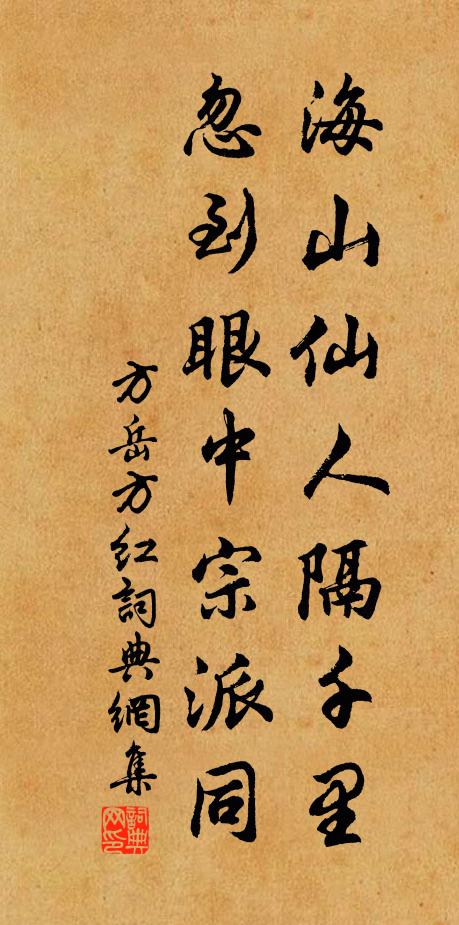 海山仙人隔千里
忽到眼中宗派同
方岳方红詞典網集
詞典网印